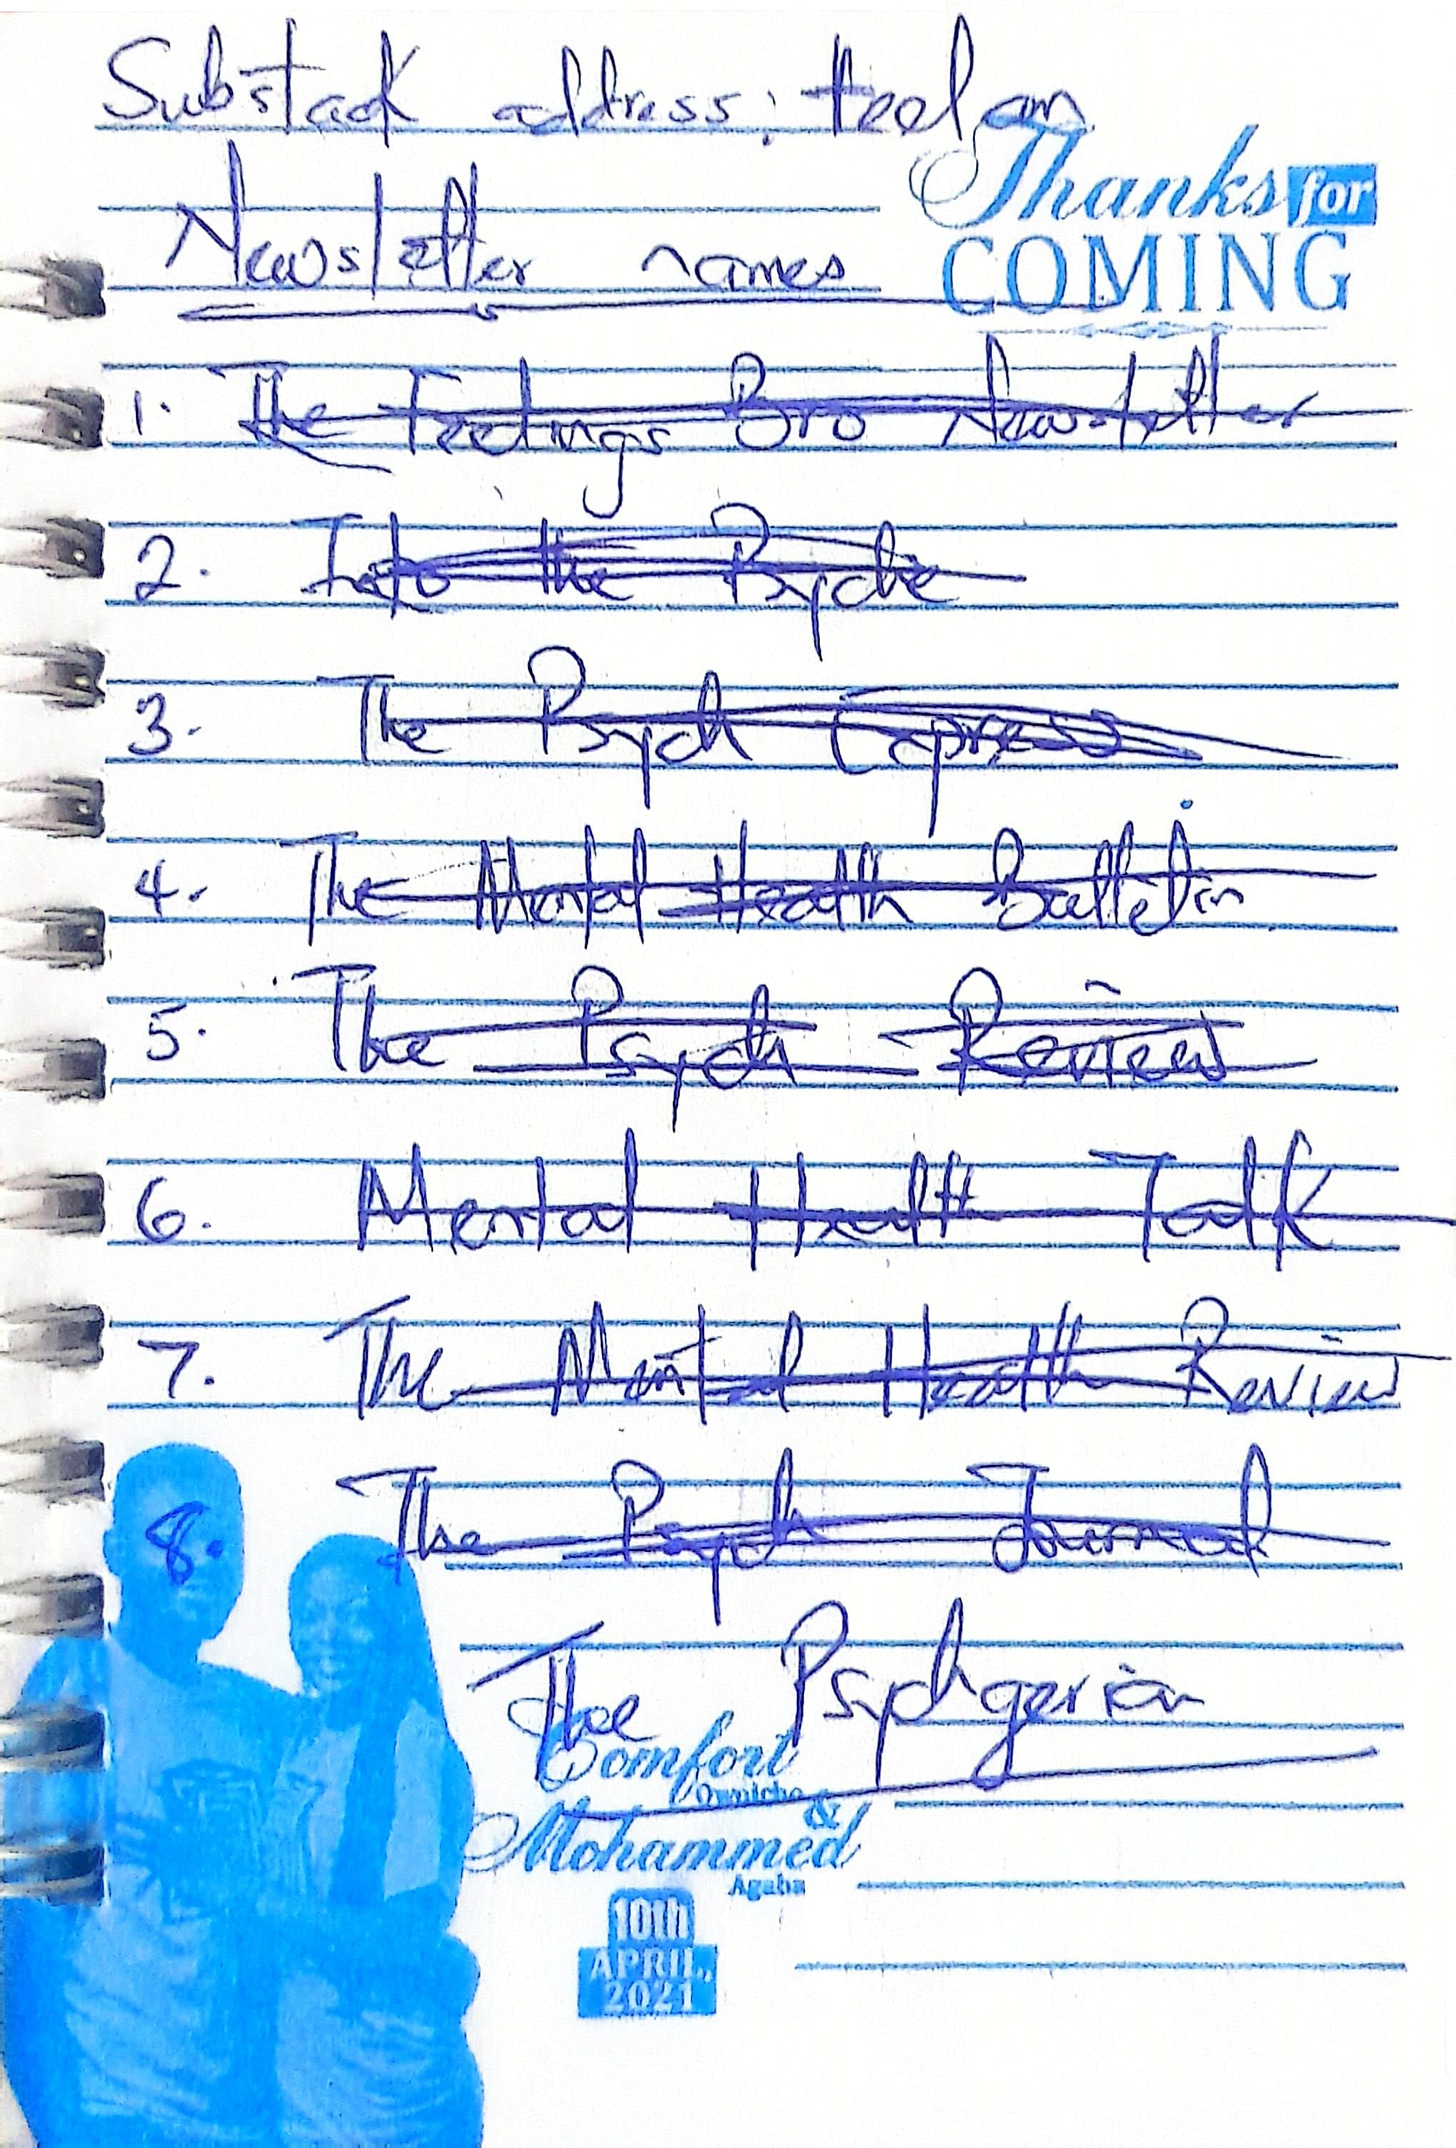 Substack address: teelam
Thanks for
COMING
Newsletter names
1. The Feelings Bro Newsletter
2. Into the Psyche
3. The Psych Express
4. The Mental Health Bulletin
5. The Psych Review
6. Mental Health Talk
7. The Mental Health Review
8. The Psych Journal
The Psychgerian
Comfort
&
Mohammed
Agaba
10th
APRIL,
2021